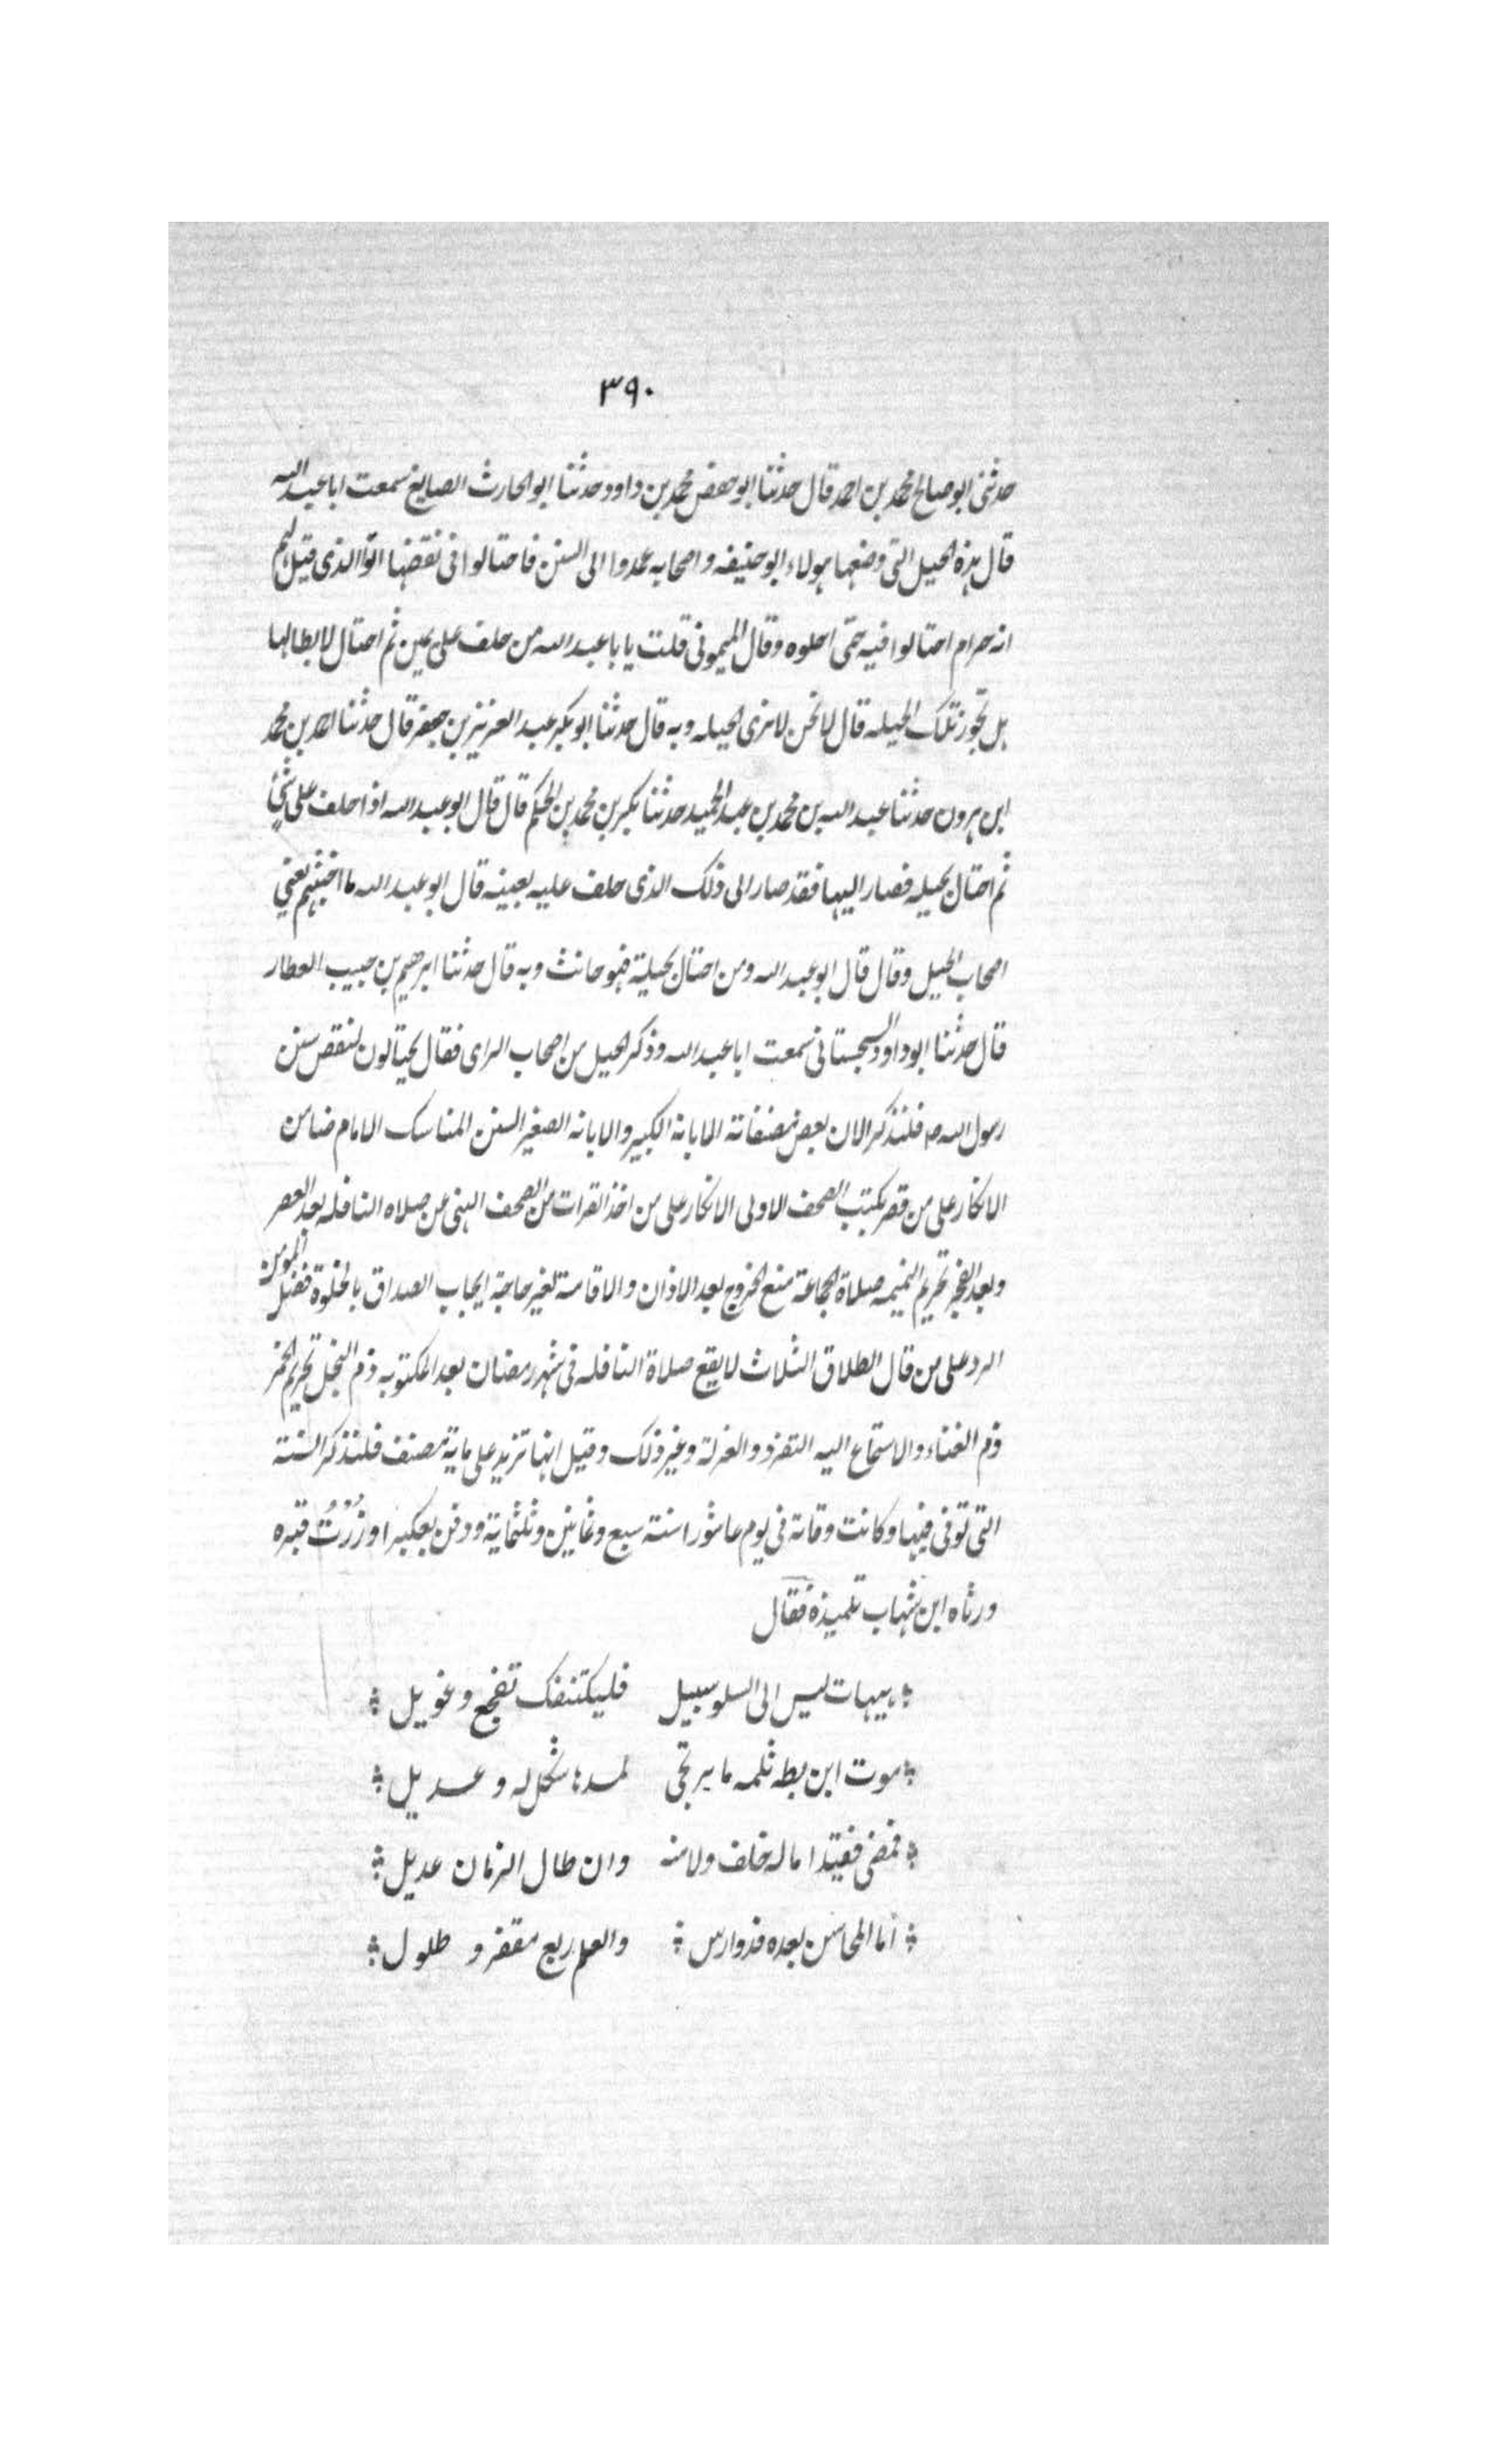 ٣٩٠
حدثنى ابو صالح محمد بن احمد قال حدثنا ابو جعفر محمد بن داود حدثنا ابو الحارث الصايغ سمعت ابا عبد الله
قال هذه الحيل التى وضعها هولاء ابو حنيفه واصحابه عمدوا الى السنن فاحتالوا فى نقضها اتوا الذى قيل لهم
انه حرام احتالوا فيه حتى احلوه وقال الميمونى قلت يا با عبد الله من حلف على يمين ثم احتال لابطالها
هل تجوز تلك الحيله قال لا نحن لا نرى الحيله وبه قال حدثنا ابو بكر عبد العزيز بن جعفر قال حدثنا احمد بن محمد
ابن هرون حدثنا عبد الله بن محمد بن عبد الحميد حدثنا بكر بن محمد بن الحكم قال قال ابو عبد الله اذا حلف على شئ
ثم احتال بحيله فصار اليها فقد صار الى ذلك الذى حلف عليه بعينه قال ابو عبد الله ما اخبثهم يعنى
اصحاب الحيل وقال قال ابو عبد الله ومن احتال بحيلة فهو حانث وبه قال حدثنا ابرهيم بن حبيب العطار
قال حدثنا ابو داود السجستانى سمعت ابا عبد الله وذكر الحيل من اصحاب الراى فقال يحتالون لنقض سنن
رسول الله ص فلنذكر الان بعض مصنفاته الابانة الكبير والابانه الصغير السنن المناسك الامام ضامن
الانكار على من قصر بكتب الصحف الاولى الانكار على من اخذ القرات من الصحف النهى عن صلاه النافله بعد العصر
وبعد الفجر تحريم النميمه صلاة الجماعة منع الخروج بعد الاذان والاقامة لغير حاجة ايجاب الصداق بالخلوة فضل المومن
الرد على من قال الطلاق الثلاث لا يقع صلاة النافله فى شهر رمضان بعد المكتوبه ذم البخل تحريم الخمر
ذم الغناء والاستماع اليه التفرد والعزلة وغير ذلك وقيل انها تزيد على ماية مصنف فلنذكر السنة
التى توفى فيها وكانت وفاته فى يوم عاشورا سنة سبع وثمانين وثلثماية ودفن بعكبرا وزُرْتُ قبره
ورثاه ابن شهاب تلميذه فقال
هيهات ليس الى السلو سبيل فليكتنفك تفجع وعويل
موت ابن بطه ثلمه ما يرتجى لسدها شكل له وعديل
فمضى فقيدا ماله خلف ولا منه وان طال الزمان عديل
أما المحاسن بعده فدوارس والعلم ربع مقفر و طلول